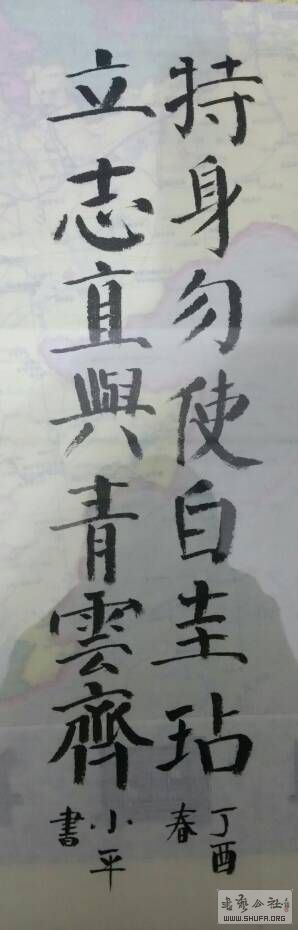 持身勿使白圭玷
立志直與青雲齊
丁酉
春
小平
書
书艺公社
WWW.SHUFA.ORG